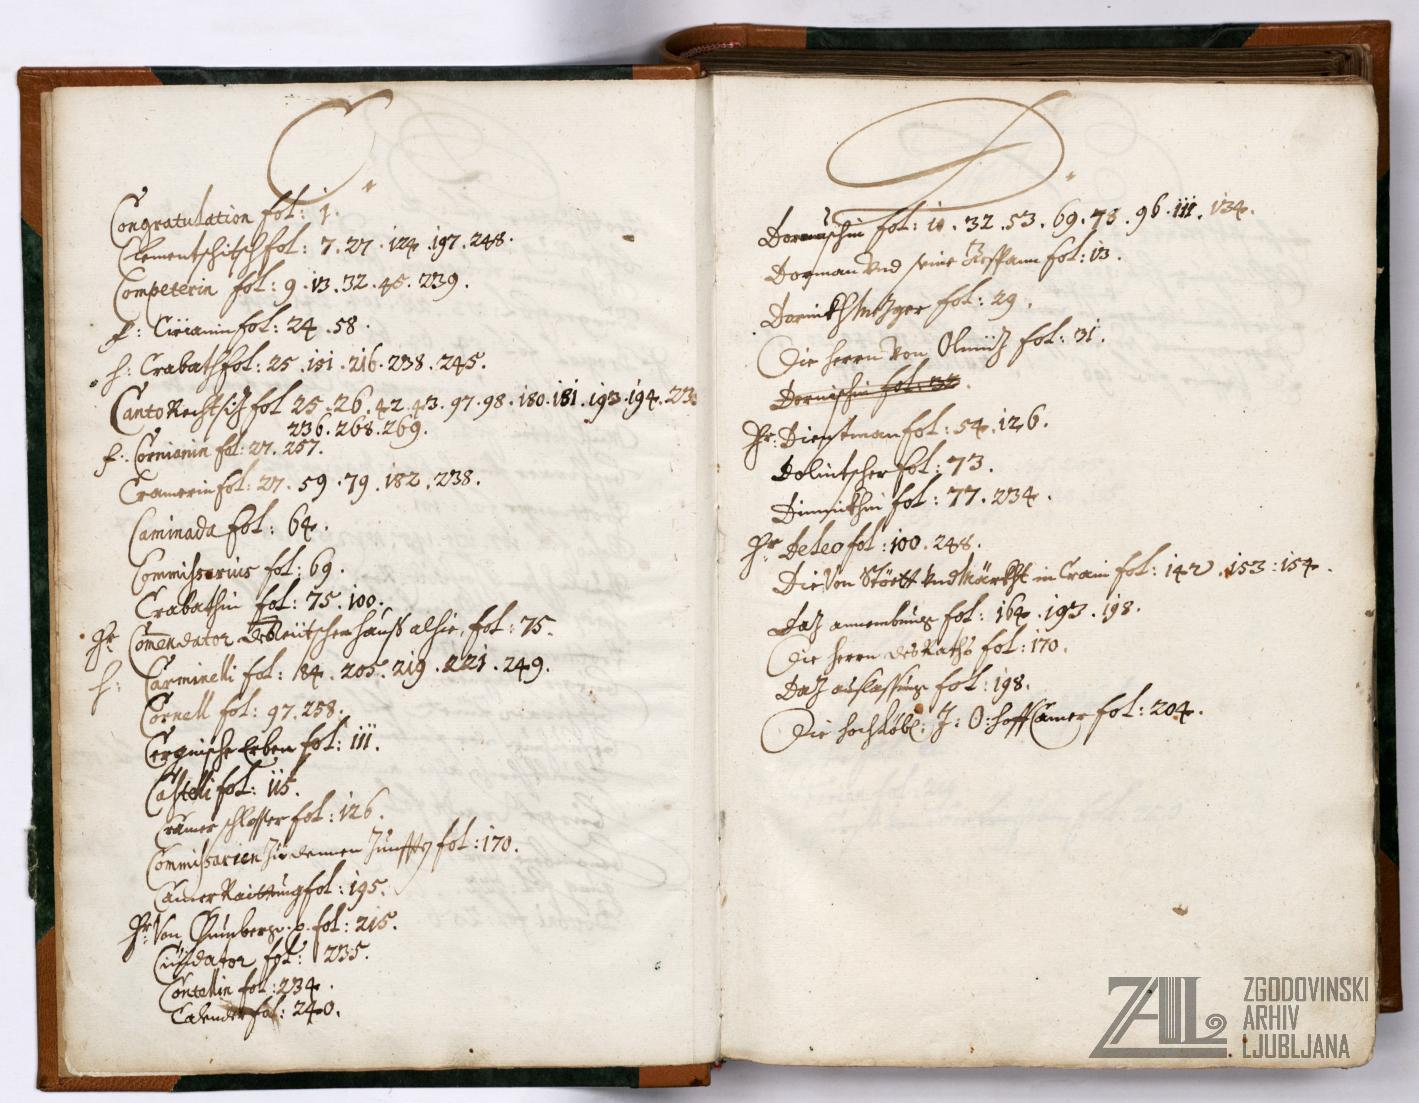 C
Congratulation fol: 1.
Clementschitsch fol: 7. 27. 124. 197. 248.
Competerin fol: 9. 13. 32. 45. 239.
f: Cirianin fol: 24. 58.
h: Crabath fol: 25. 101. 216. 238. 245.
Canto Rechtsitz fol 25. 26. 42. 43. 97. 98. 180. 181. 193. 194.
236. 268. 269.
f: Cornianin fol: 27. 257.
Cramerin fol: 27. 59. 79. 182. 238.
Caminada fol: 64.
Commissarius fol: 69.
Crabathin fol: 75. 100.
Hr: Comendator Teütschen hauss alhie, fol: 75.
h: Carminelli fol: 184. 205. 219. 221. 249.
Cornell fol: 97. 258.
Erben fol: 111.
Castelli fol: 115.
Cramer schlosser fol: 126.
Commissarien zu denen Zünfften fol: 170.
Camer Raittung fol: 195.
Hr: Von fol: 215.
fol: 235.
Contellin fol: 234.
Calender fol: 240.
D
fol: 10. 32. 53. 69. 73. 96. 111. 134.
Dorman Vnd seine fol: 13.
Metzger fol: 29.
Die herrn Von Olmütz fol: 31.
Dornischin fol:
Hr: Dientman fol: 54. 126.
Dolnitscher fol: 73.
fol: 77. 234.
Hr Deleo fol: 100. 248.
Die Von Stöett Vnd Märckht in Crain fol: 142. 153: 154.
Daß annembung fol: 164. 193. 198.
Die herrn des Raths fol: 170.
Daß auslassung fol: 198.
Die hochlöbl: I: O: hoff Camer fol: 204.
ZAL ZGODOVINSKI
ARHIV
LJUBLJANA